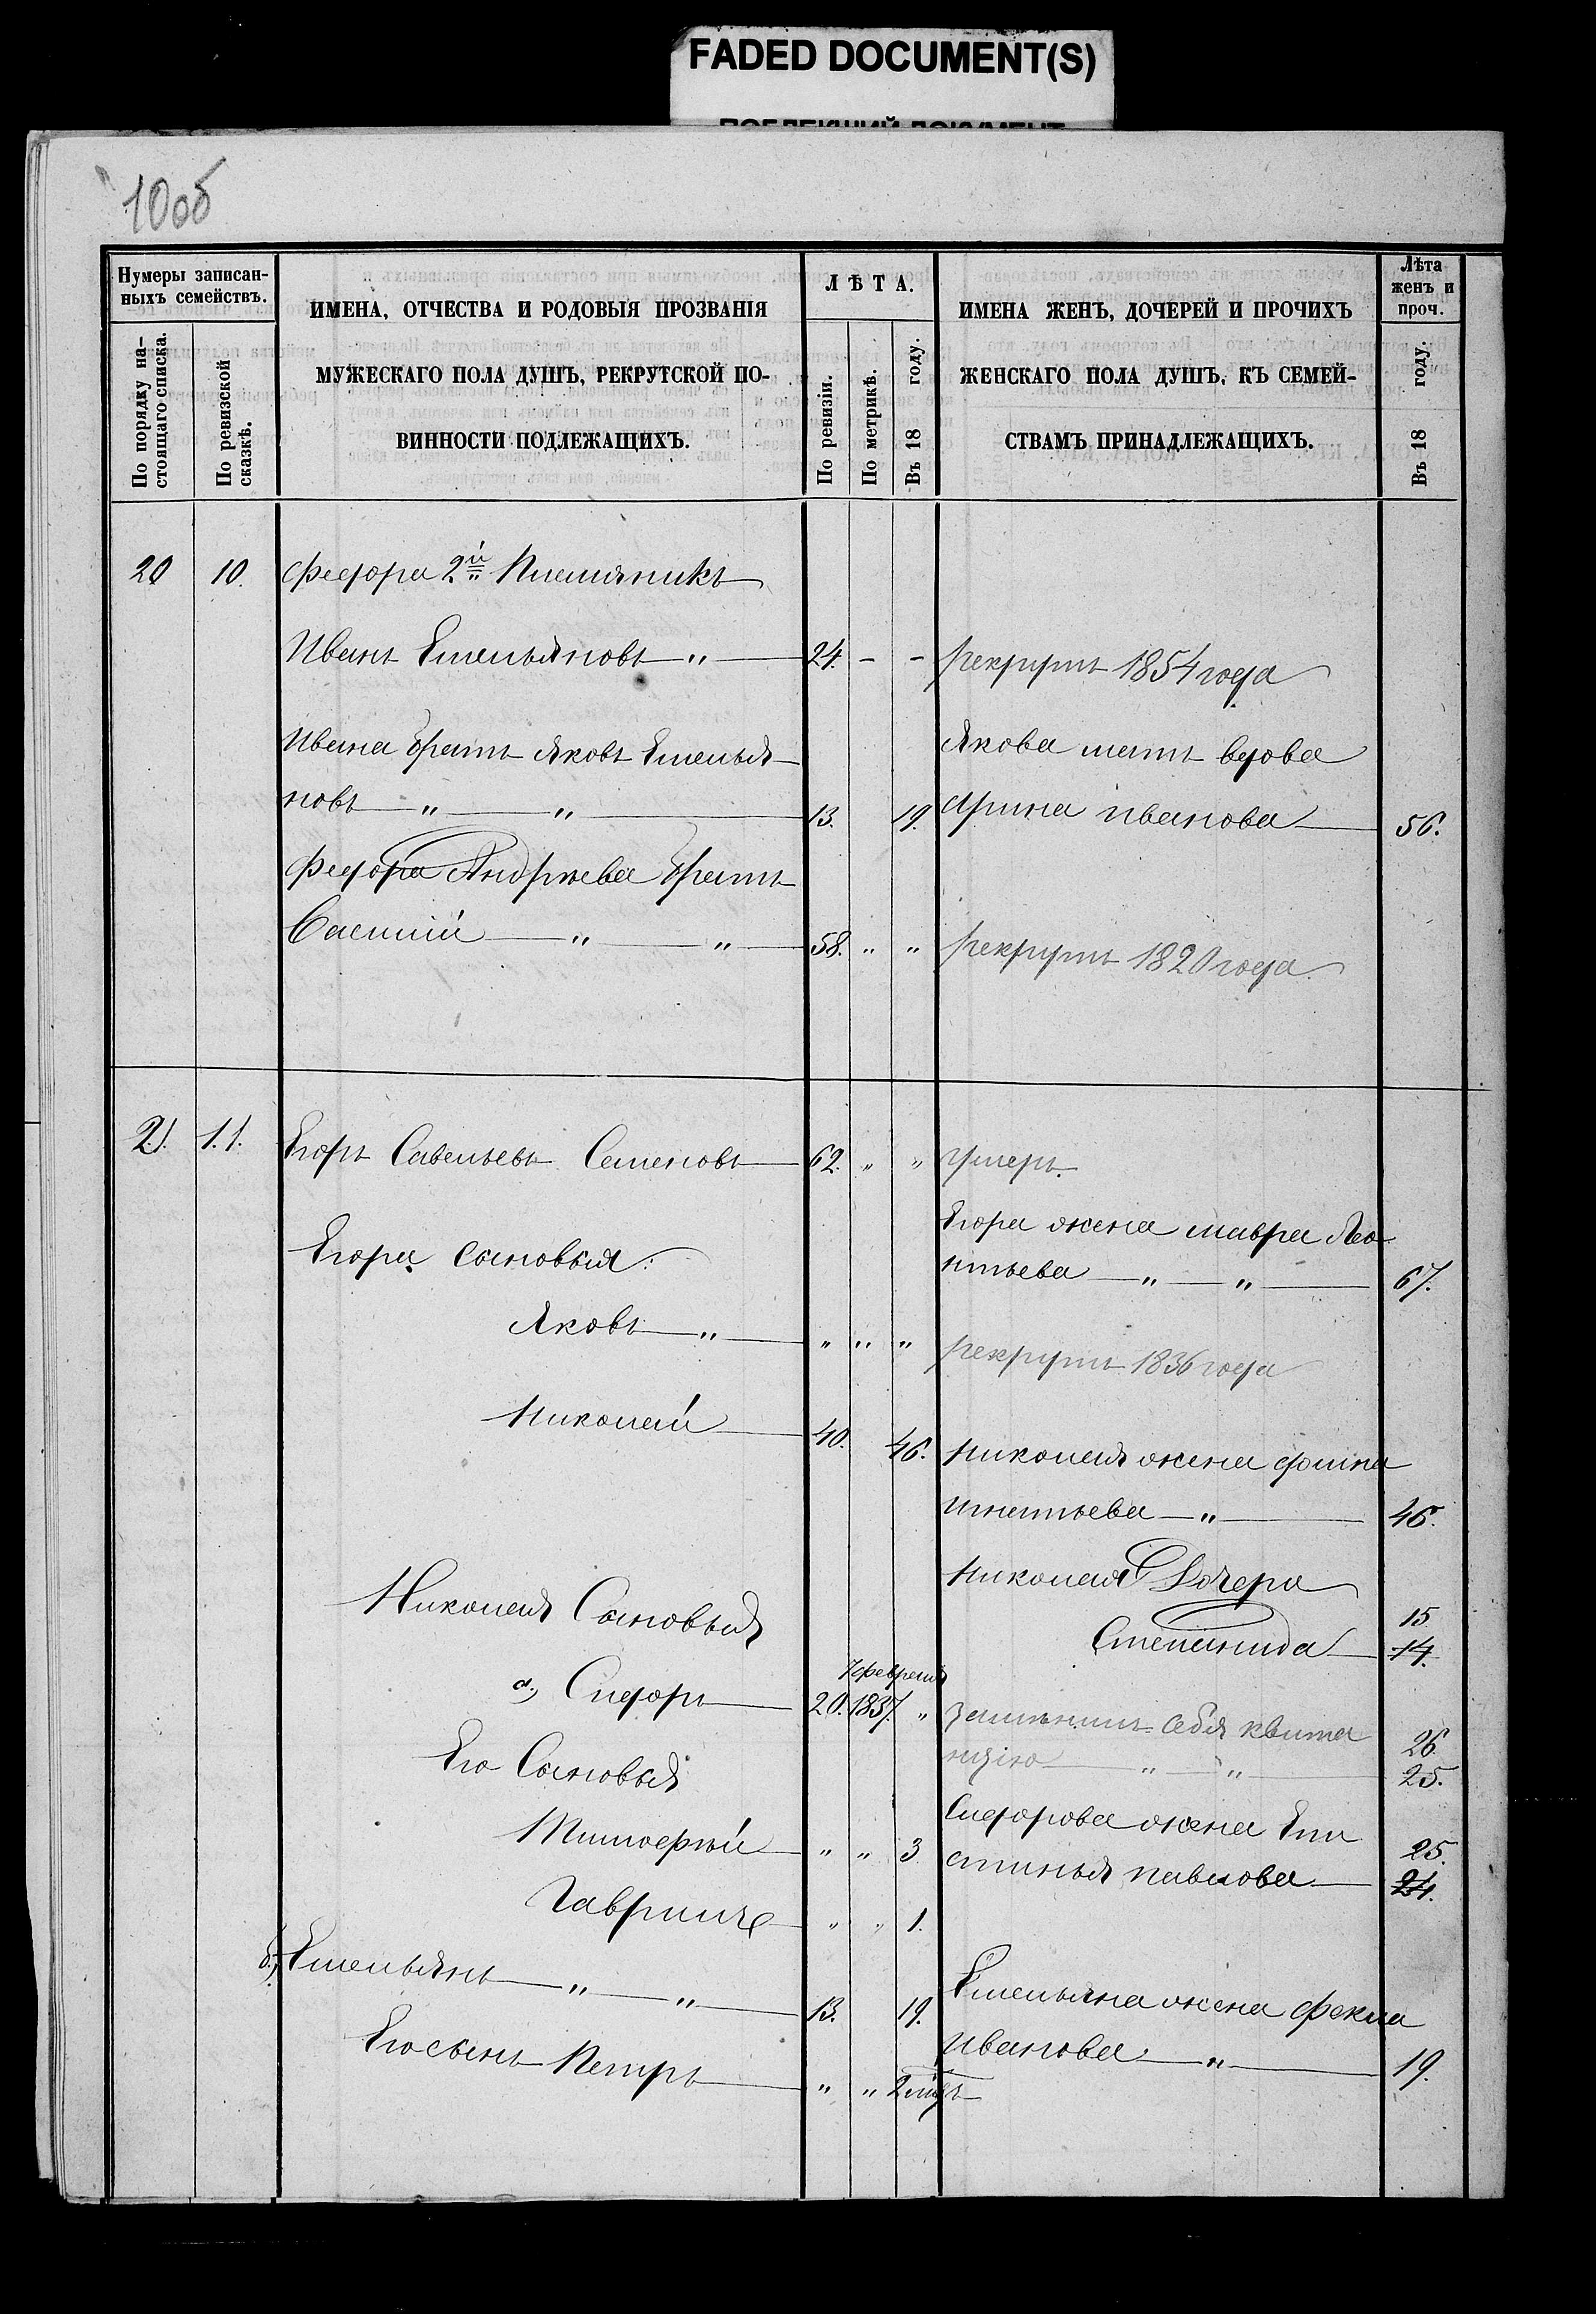 FADED DOCUMENT(S)
ПОБЛЕКШИЙ ДОКУМЕНТ
10об
Нумеры записан-
ныхъ семействъ.
По порядку на-
стоящаго списка.
По ревизской
сказкѣ.
ИМЕНА, ОТЧЕСТВА И РОДОВЫЯ ПРОЗВАНІЯ
МУЖЕСКАГО ПОЛА ДУШЪ, РЕКРУТСКОЙ ПО-
ВИННОСТИ ПОДЛЕЖАЩИХЪ.
ЛѢТА.
По ревизіи.
По метрикѣ.
Въ 18 году.
ИМЕНА ЖЕНЪ, ДОЧЕРЕЙ И ПРОЧИХЪ
ЖЕНСКАГО ПОЛА ДУШЪ, КЪ СЕМЕЙ-
СТВАМЪ ПРИНАДЛЕЖАЩИХЪ.
Лѣта
женъ и
проч.
Въ 18 году.
20 10. Федора 2й Племяникъ
Иванъ Емельяновъ — " — 24. - - рекрутъ 1854 года
Ивана братъ Яковъ Емелья- Якова мать вдова
новъ — " — " — 13. 19. Арина Иванова — 56.
Федора Андрѣева братъ
Василий — " — " — 58. " " рекрутъ 1820 года
21. 11. Егоръ Савельевъ Семеновъ — 62. " " Умеръ.
Егора жена Мавра Лео-
Егора сыновья:
нтьева — " — " — 67.
Яковъ — " — " " " рекрутъ 1836 года
Николай — 40. 46. Николая жена
Игнатьева — " — 46.
Николая Дочери
Николая Сыновья
15
Степанида — 14.
7 февраля
а, Сидоръ — 20. 1837. " замѣнилъ себя квита
26
нціею — " — " — 25.
Его Сыновья
Сидорова жена Епи
Тимофѣй — " " 3 25.
стинья Павлова — 24.
Гаврила — " " 1.
б, Емельянъ — " — " — 13. 19. Емельяна жена Фекла
Иванова — " — 19.
Его сынъ Петръ — " " 2 мцъ